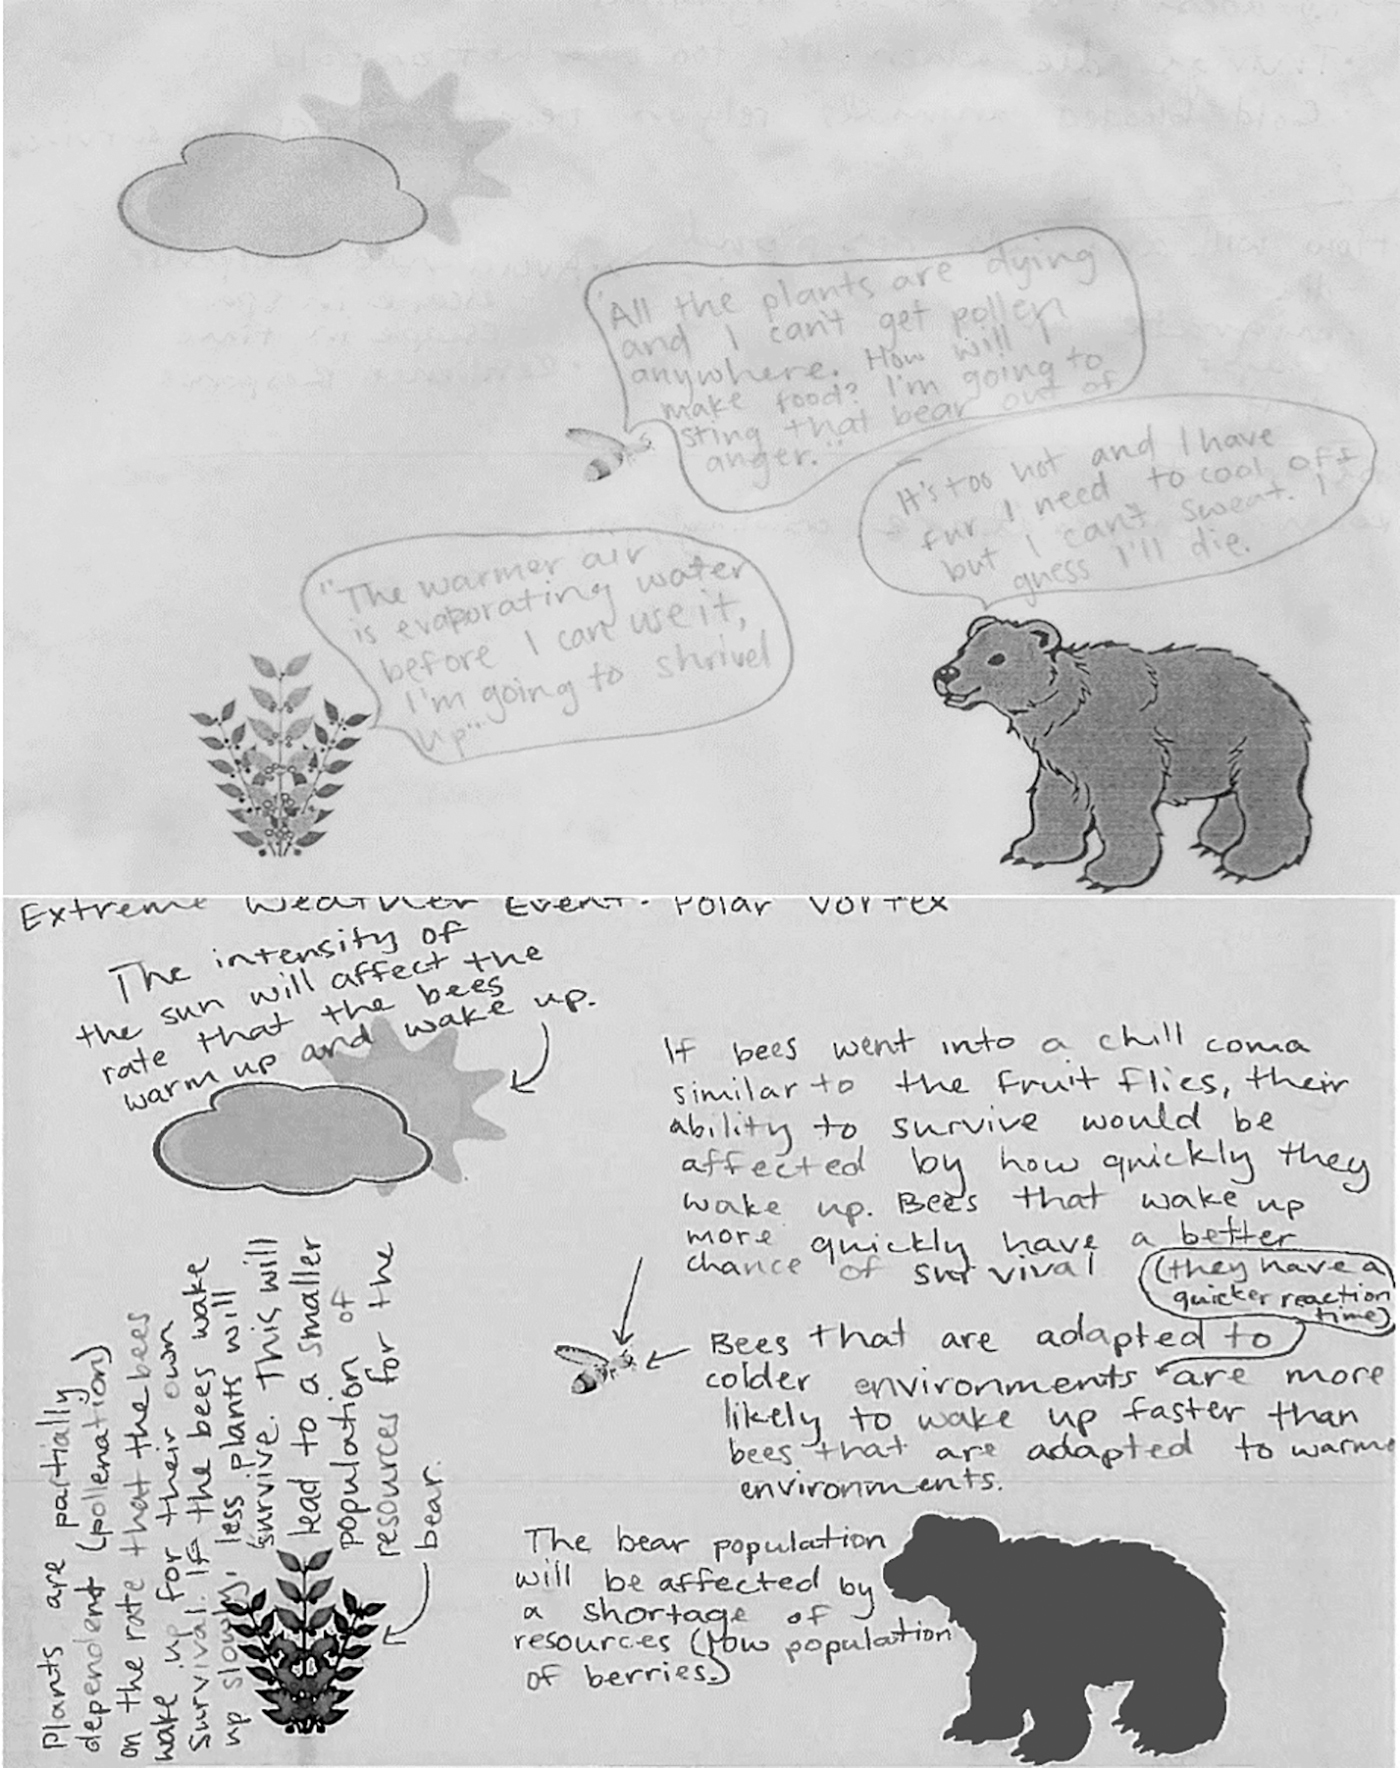 "All the plants are dying
and I can't get pollen
anywhere. How will I
make food? I'm going to
sting that bear out of
anger."
It's too hot and I have
fur I need to cool off
but I can't sweat. I
guess I'll die.
"The warmer air
is evaporating water
before I can use it,
I'm going to shrivel
up"
Extreme Weather Event: Polar Vortex
The intensity of
the sun will affect the
rate that the bees
warm up and wake up.
If bees went into a chill coma
similar to the fruit flies, their
ability to survive would be
affected by how quickly they
wake up. Bees that wake up
more quickly have a better
chance of survival
(they have a
quicker reaction
time)
Bees that are adapted to
colder environments are more
likely to wake up faster than
bees that are adapted to warme
environments.
Plants are partially
dependent (pollenation)
on the rate that the bees
wake up for their own
survival. If the bees wake
up slowly, less plants will
survive. This will
lead to a smaller
population of
resources for the
bear.
The bear population
will be affected by
a shortage of
resources (low population
of berries.)